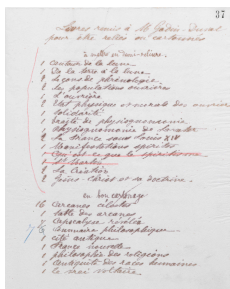 37
Livres remis à M. Godin-Duval
pour être reliés ou cartonnés
à mettre en demi-reliure
1 Contour de la lune
1 De la terre à la lune
2 Leçons de phrénologie
1 les populations ouvrières
1 L'ouvrière
2 Etat physique et morale des ouvriers
1 Solidarité
1 traité de physiognomonie
1 physiognomonie de Lavater
2 La France sous Louis XIV
1 Manifestations spirites
1 Qu'est-ce que le spiritisme
1
1 La Création
2 Jésus-Christ et sa doctrine
en bon cartonnage
16 Arcanes célestes
1 table des arcanes
2 Apocalypse révélée
6 Sommaire philosophique
1 cité antique
1 France nouvelle
1 philosophie des religions
1 Antiquité des races humaines
1 le vrai Voltaire